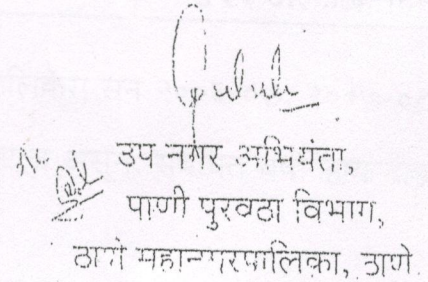 उप नगर अभियंता,
पाणी पुरवठा विभाग,
ठाणे महानगरपालिका, ठाणे.